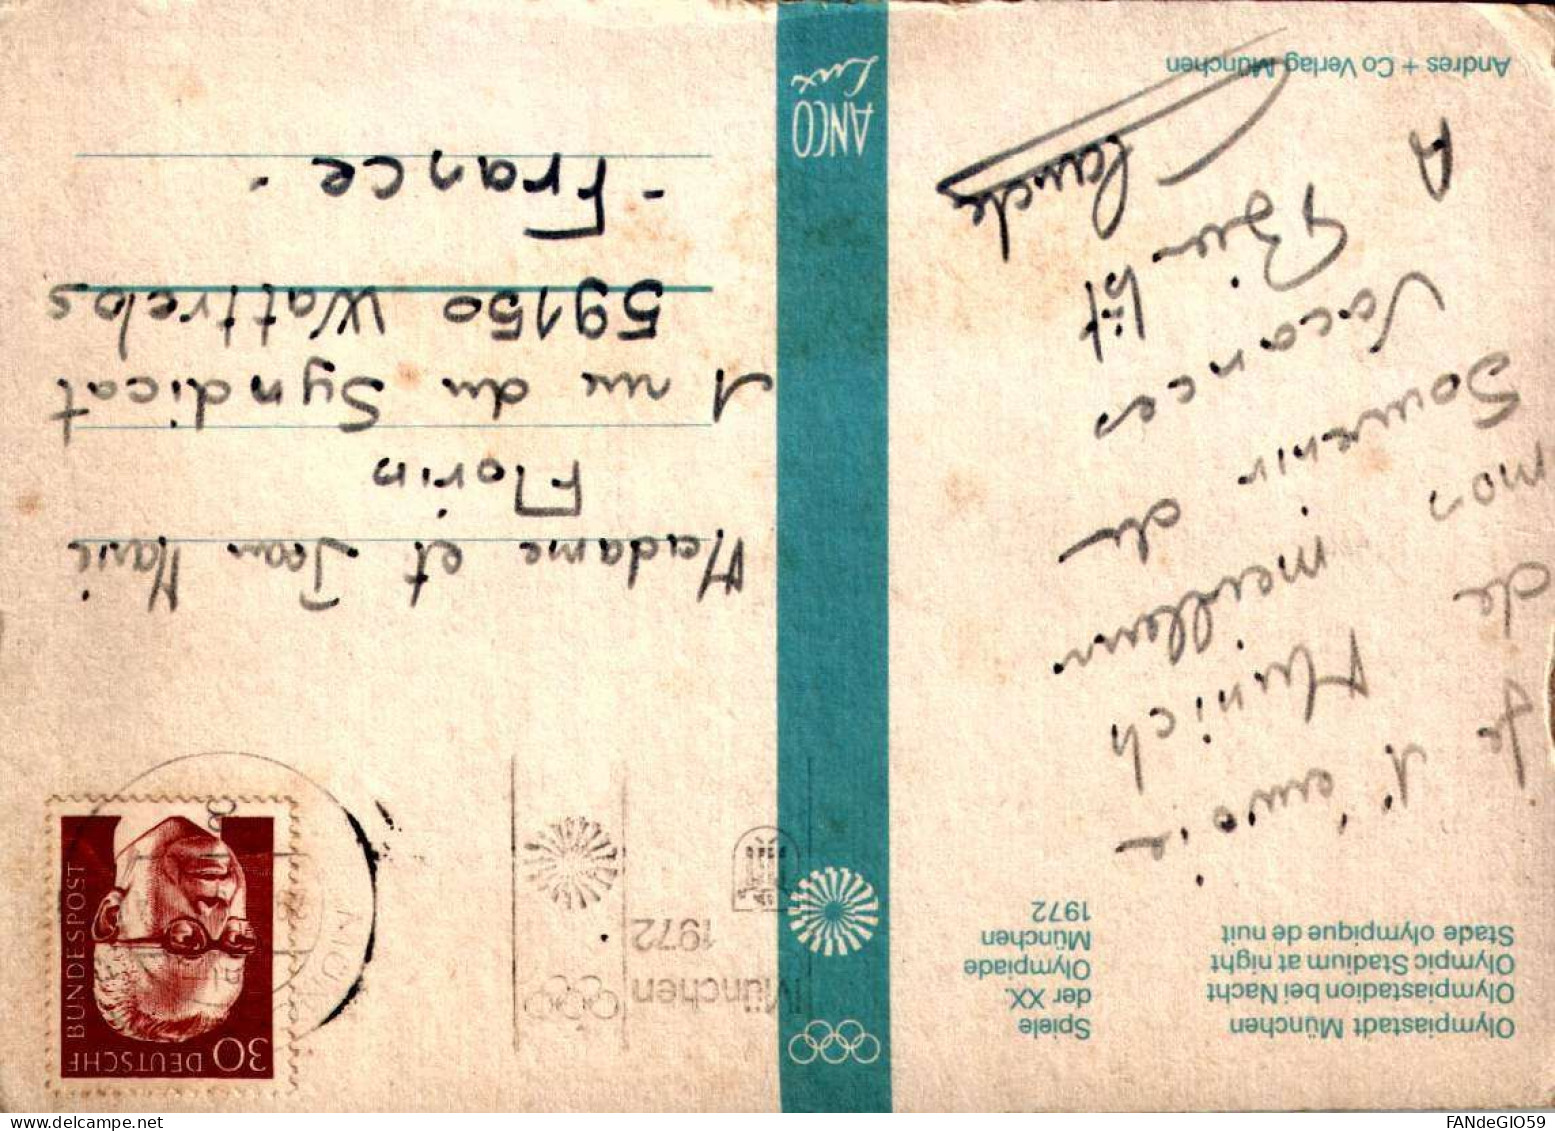 Olympiastadt München
Olympiastadion bei Nacht
Olympic Stadium at night
Stade olympique de nuit
Spiele
der XX.
Olympiade
München
1972
Je t'envoie
de Munich
mon meilleur
Souvenir de
Vacances
A Bientôt
Claude
Andres + Co Verlag München
ANCO
Lux
München
1972
DEUTSCHE
BUNDESPOST
30
Madame et Jean Marie
Florin
1 rue du Syndicat
59150 Wattrelos
- France -
FANdeGIO59